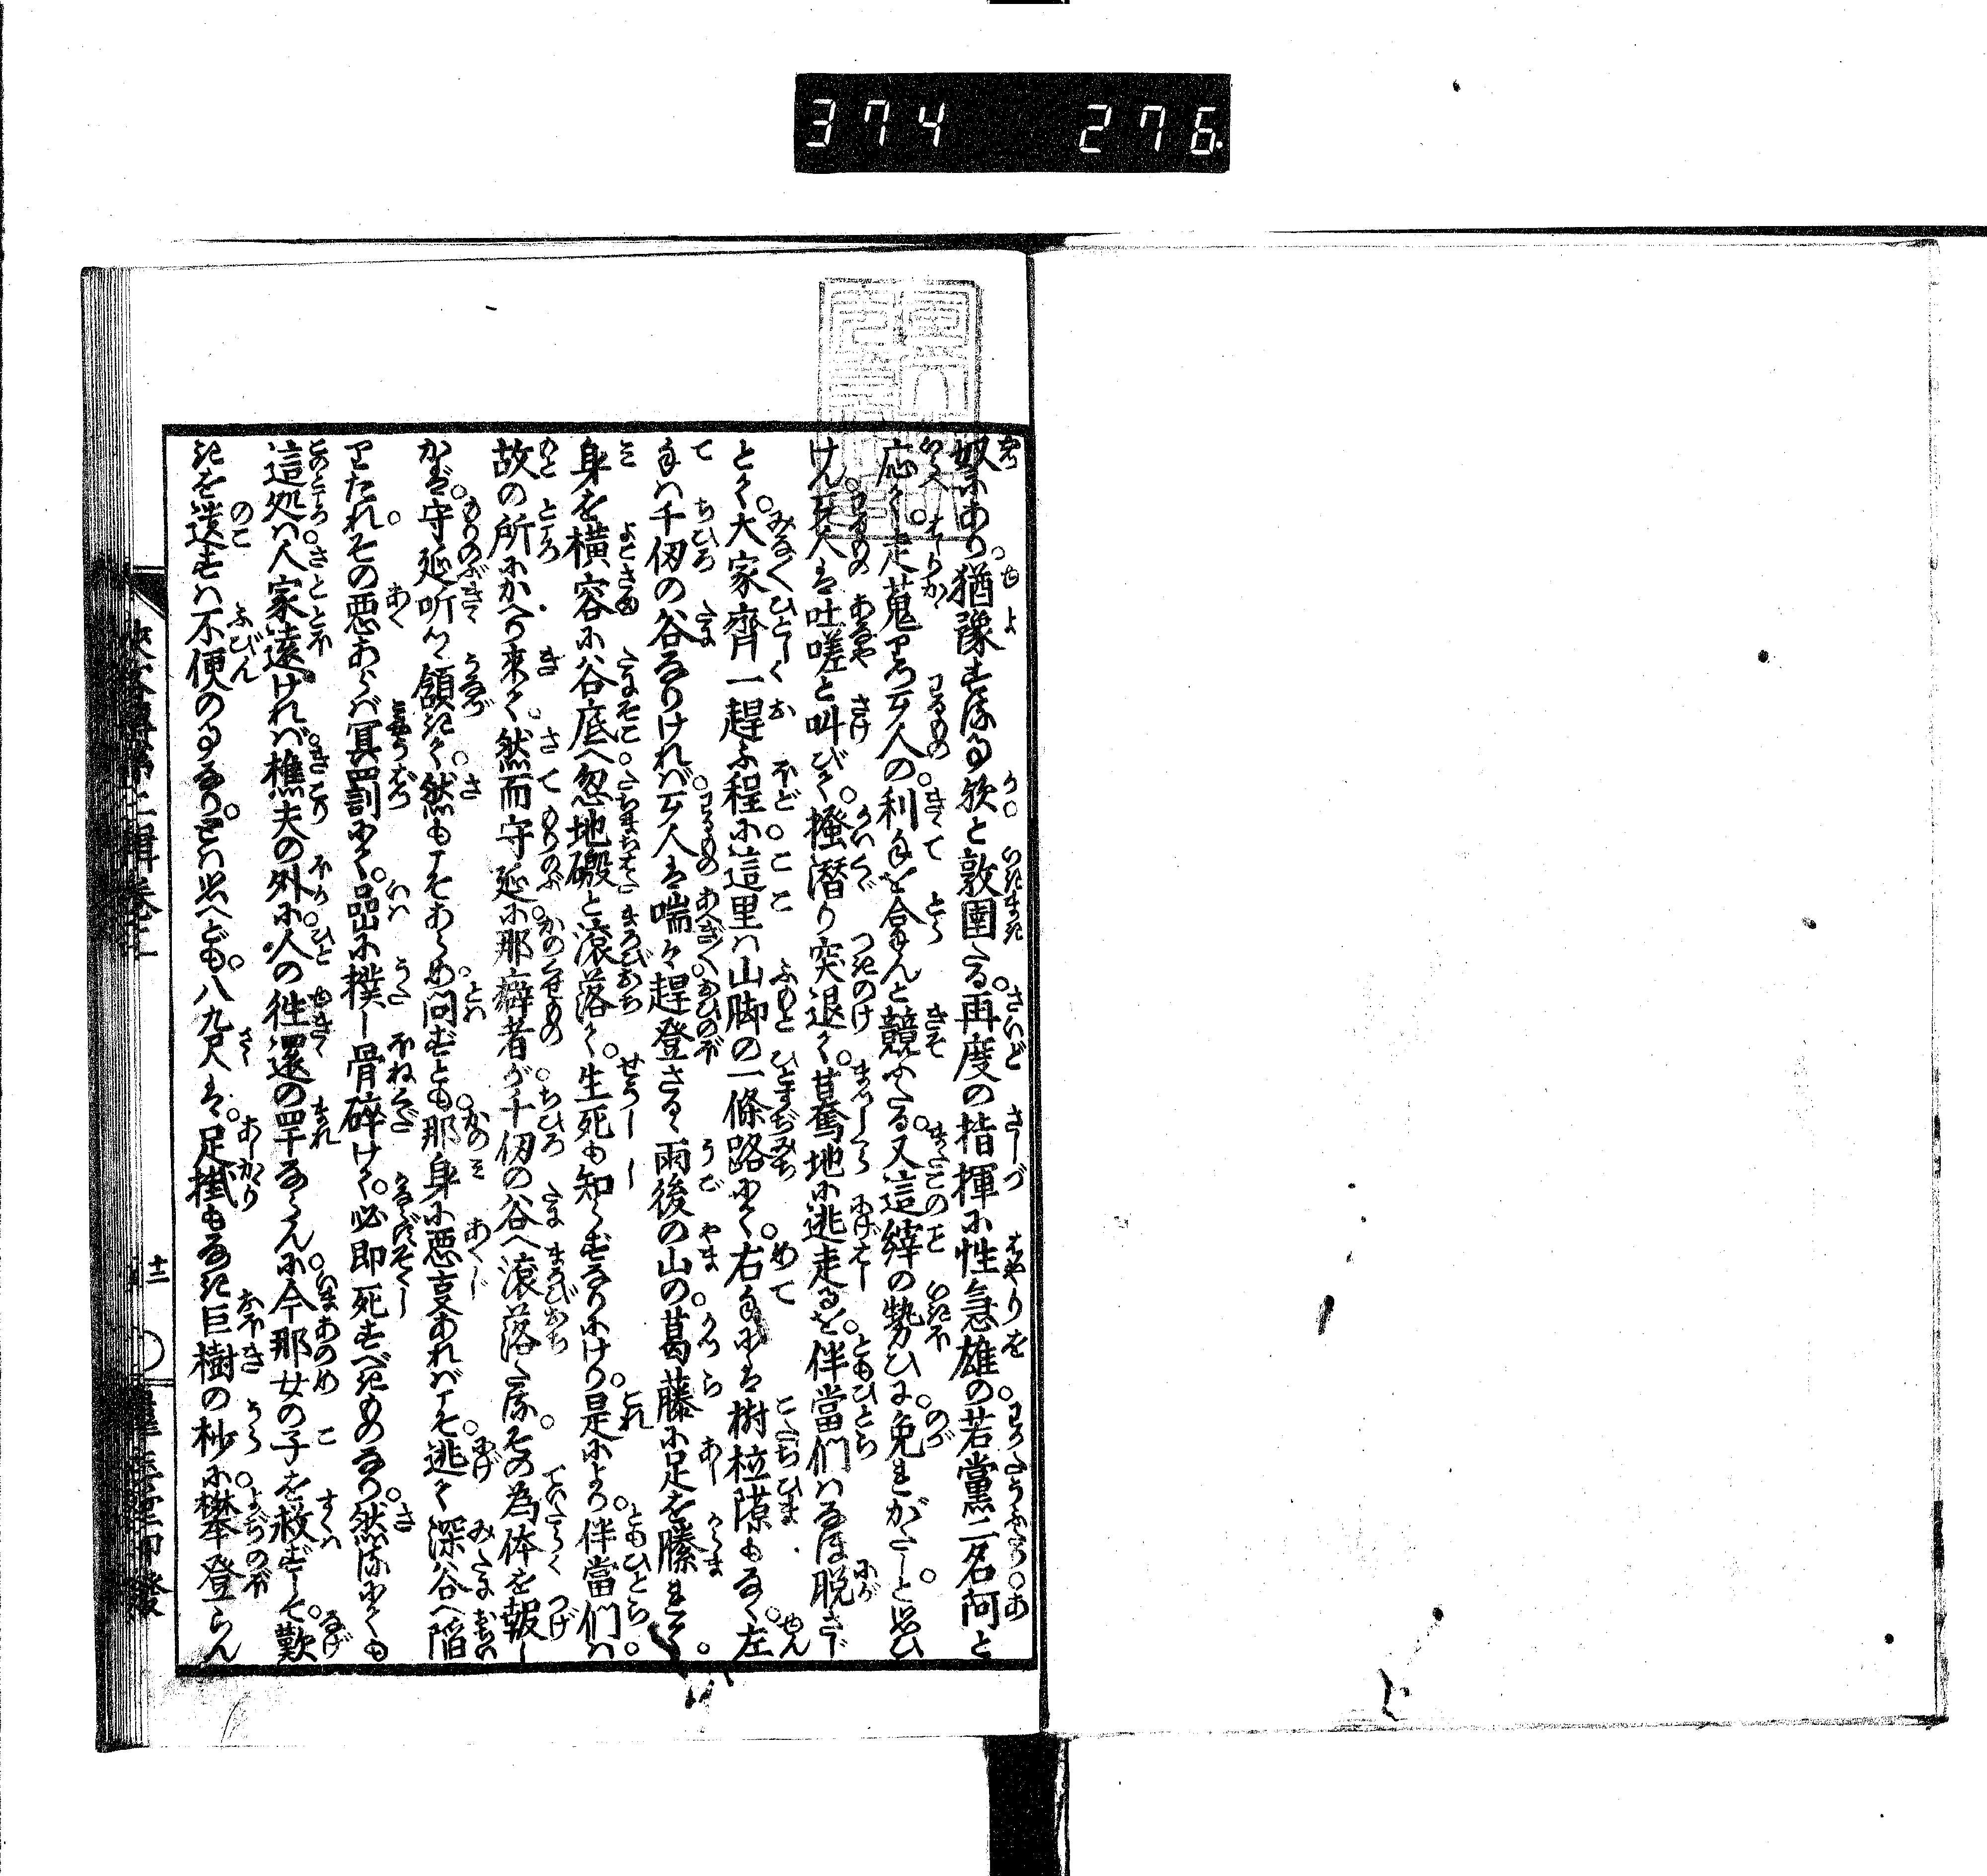 374 276
奴にあり。猶豫する事歟と敦圉たる。再度の指揮に性急雄の。若黨二名阿と
応て。走蒐りつ歹人の。利手を合んと競ふたる。又這縡の勢ひに。免れがたしと思ひ
けん。歹人は吐嗟と叫びて。掻潜り突退て。驀地に逃走るを。伴當們はなほ脱さじ
とて。大家齊一趕ふ程に。這里は山脚の一條路にて。右手には樹柆隙もなく。左
手は千仭の谷なりければ。歹人は喘々趕登さるゝ雨後の山の。葛藤に足を縢れて。
身を横容に谷底へ。忽地磤と滾落て。生死も知らずなりにけり。是により。伴當們は。
故の所にかへり來て。然而守延に。那癖者が。千仭の谷へ滾落たる。その為体を報し
かば。守延听つゝ領きて。然もこそあらめ。問ずとも。那身に悪事あればこそ。逃て深谷へ陥
りたれ。その悪あらば冥罰にて。嵒に撲し骨碎けて。必即死すべきものなり。然るにても
這処は。人家遠ければ。樵夫の外に。人の徃還の罕ならんに。今那女の子を救ずして。歎
きを遺すは不便の事なり。とは思へども。八九尺は。足掛もなき巨樹の杪に。攀登らん
十二